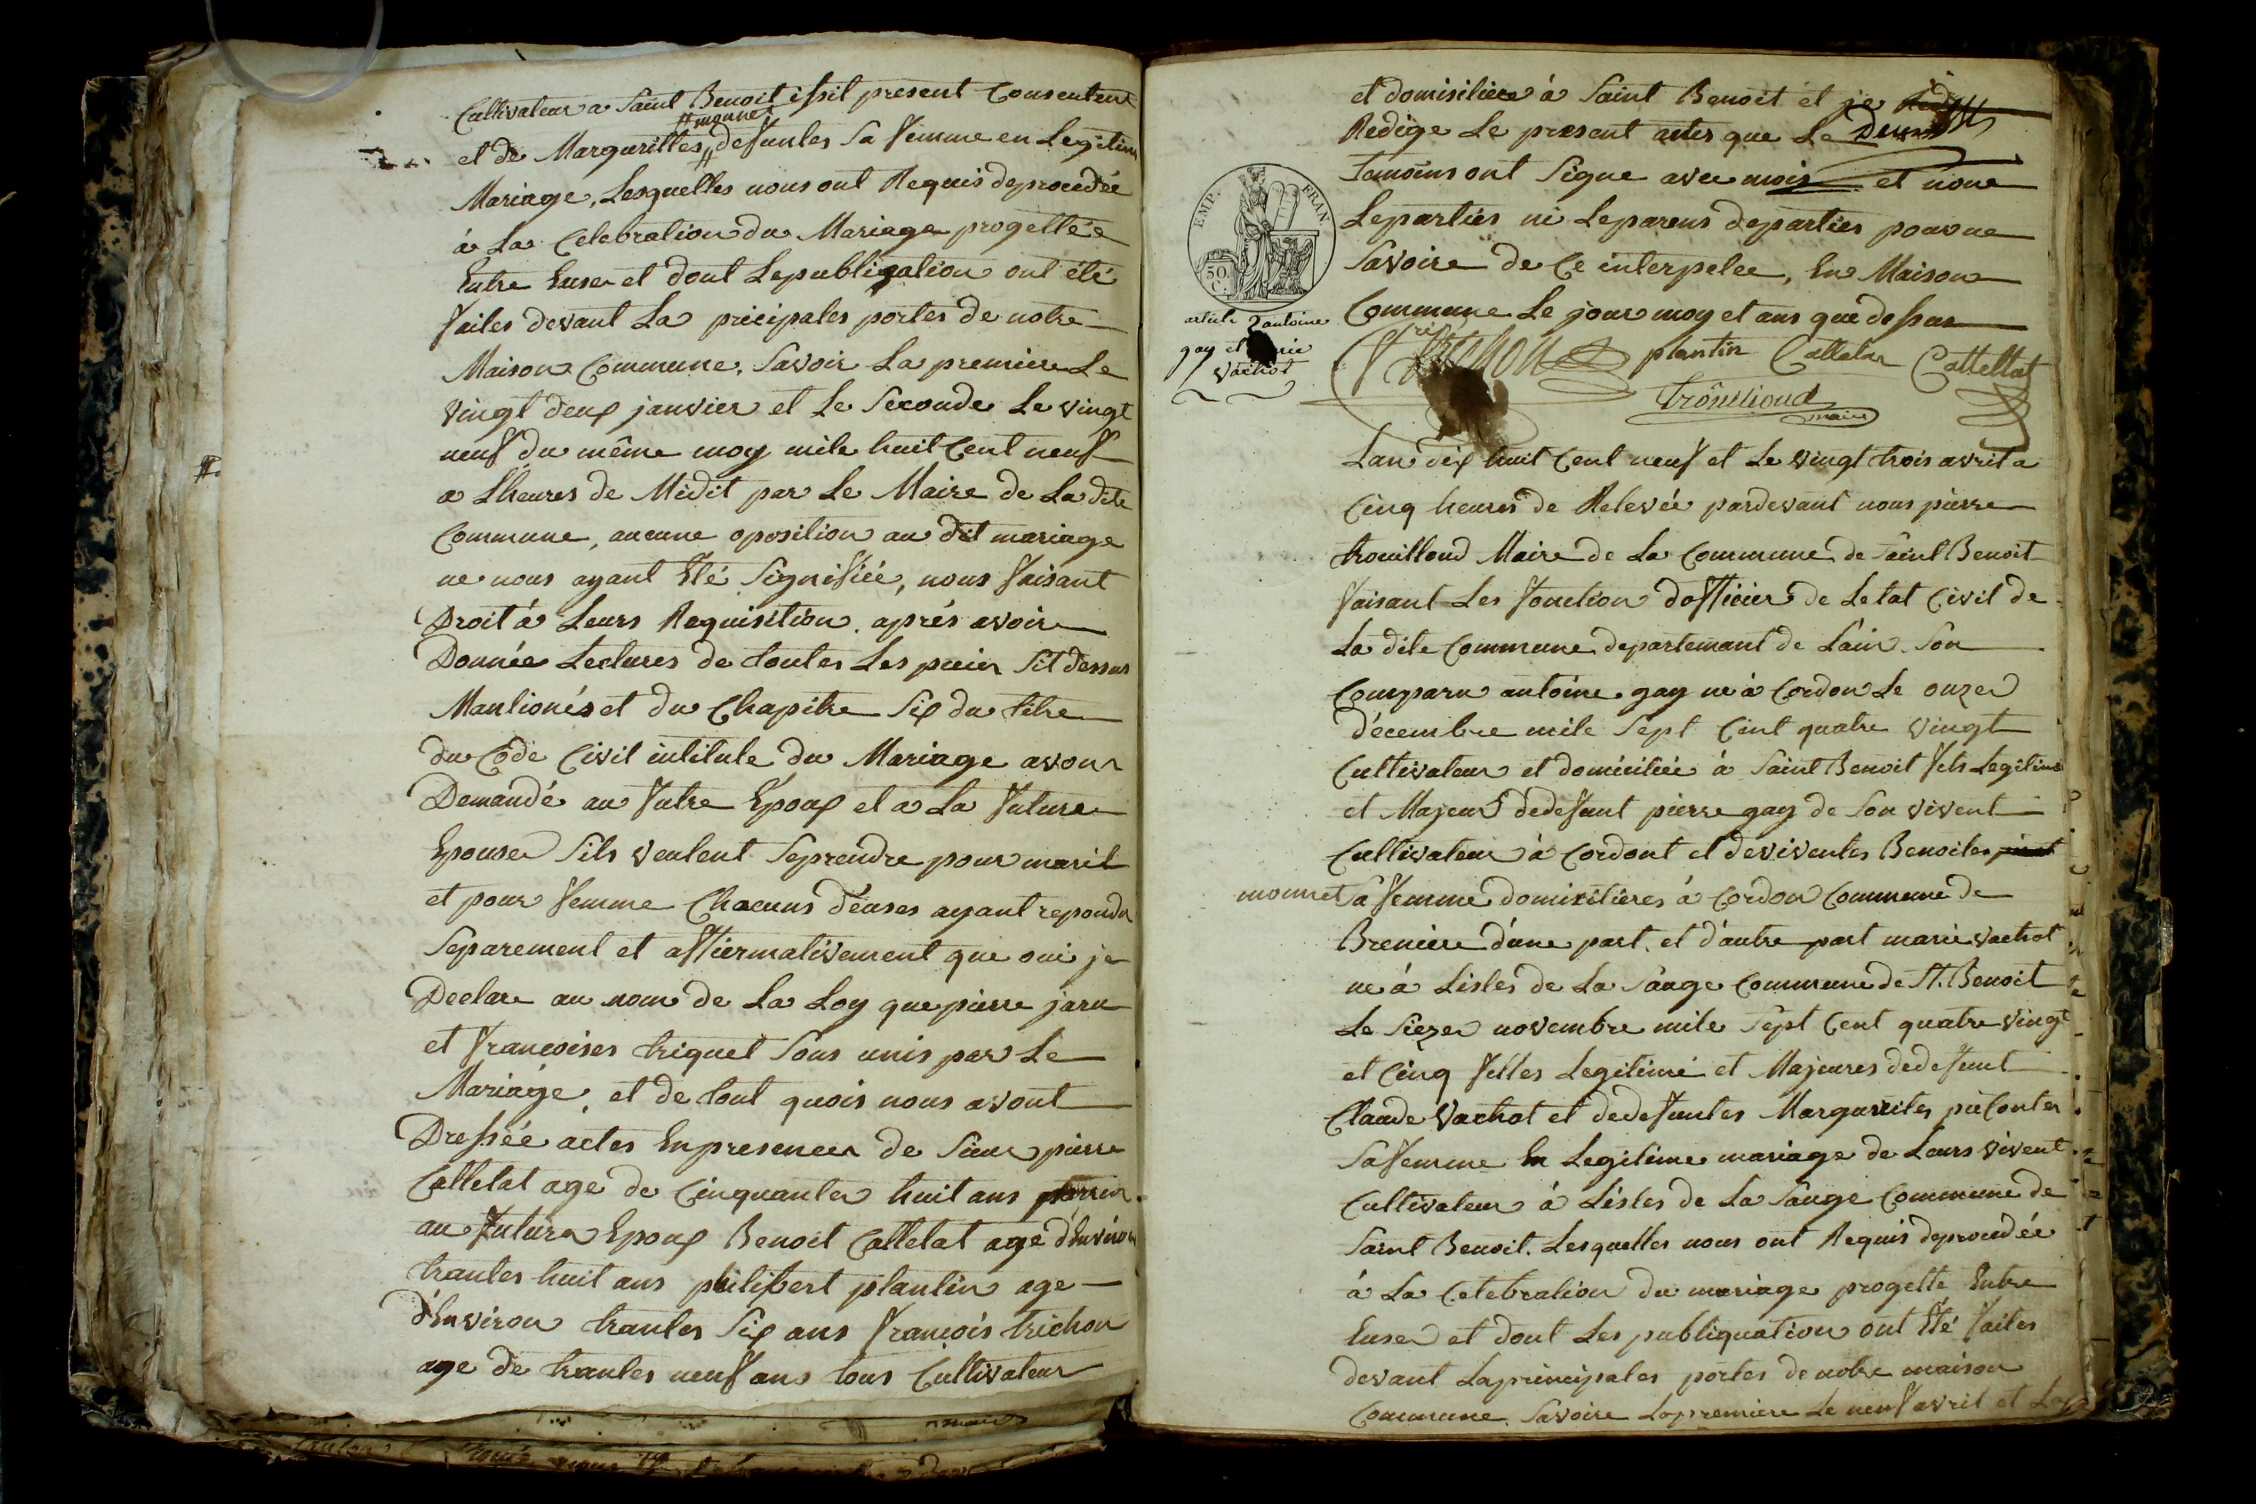 Cultivateur a Saint Benoit issit present Consentent
monnet
et de Margurittes defuntes Sa femme en Legitime
Mariage, Lesquelles nous ont Requis deprocedée
à La Celebration du Mariage progettée
Entre Euser et dont Lepubligation ont été
faites devant La pricipales portes de notre
Maison Commune, Savoir La premiere Le
vingt deux janvier et Le Seconde Le vingt
neuf du même moy mile huit Cent neuf
a Lheures de Midit par Le Maire de La dite
Commune, aucune oposition au dit mariage
ne nous ayant Eté Signifiéé, nous faisant
Droit à Leurs Requisition, aprés avoir
Donnée Lectures de toutes Les pieier Sit dessus
Mantionés et du Chapitre Six du titre
du Code Civil intitule du Mariage avour
Demandé au futre Epoux et a La future
Epouser Sils veulent Seprendre pour marit
et pour femme Chacuns d'euses ayant repondu
Separement et affiermativement que oui je
Declare au nom de La Loy que pierre jaru
et francoises triquet Sous unis par Le
Mariage, et de tout quois nous avont
Dressée actes Enpresencer de Sieur pierre
Calletat age de Cinquanter huit ans
au futura Epoux Benoit Calletat age d'Environ
trantes huit ans philibert plantin age
d'Environ trantes Six ans francois trichon
age de trantes neuf ans tous Cultivateur
et domisiliées à Saint Benoit et je
Redige Le present actes que Le
Temoins ont Signe avec mois et none
Leparties ni Leparens departies pour ne
Savoire de Ce interpelee, En Maison
Commune Le jour moy et ans que dessus
EMP. FRAN.
50 C.
article 2 antoine
gay et
vachot
trichon plantin Calletat Cattellat
Trouilloud
maire
Lan dix huit Cent neuf et Le vingt trois avril a
Cinq heures de Relevée pardevant nous pierre
trouilloud Maire de La Commune de Saint Benoit
faisant Les fonction d'officier de Letat Civil de
La dite Commune departemant de Lain. Son
Comparu antoine gay né à Cordon Le onzer
décembre mile Sept Cent quatre vingt
Cultivateur et domiciliée à Saint Benoit fils Legitime
et Majeur dedefunt pierre gay de Son vivent
Cultivateur à Cordont et deviventes Benoites
monnet Sa femme domicilières à Cordon Commune de
Breniere d'une part, et d'autre part marie vachot
ne à Lisles de La Sauge Commune de St. Benoit
Le Siezer novembre mile Sept Cent quatre vingt
et Cinq filles Legitime et Majeures dedefunt
Claude vachot et dedefuntes Margurites
Safemme En Legitime mariage de Leurs vivent
Cultivateur à Lisles de La Sauge Commune de
Saint Benoit. Lesquelles nous ont Requis deprocedée
à La Celebration du mariage progetté Entre
Euser et dont Les publiquation ont Eté faites
devant Laprincipales portes de notre maison
Commune. Savoire Lapremiere Le neuf avril et